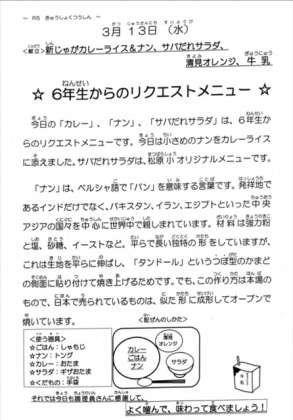 ～ R5 きゅうしょくつうしん ～
3月 13日（水）
＜献立＞新じゃがカレーライス＆ナン、サバだれサラダ、
清見オレンジ、牛乳
☆ 6年生からのリクエストメニュー ☆
今日の「カレー」、「ナン」、「サバだれサラダ」は、6年生か
らのリクエストメニューです。今日は小さめのナンをカレーライス
に添えました。サバだれサラダは、松原小オリジナルメニューです。
「ナン」は、ペルシャ語で「パン」を意味する言葉です。発祥地で
あるインドだけでなく、パキスタン、イラン、エジプトといった中央
アジアの国々を中心に世界中で親しまれています。材料は強力粉
と塩、砂糖、イーストなど。平らで長い独特の形をしていますが、
これは生地を平らに伸ばし、「タンドール」というつぼ型のかまど
の側面に貼り付けて焼き上げるためです。でも、この作り方は本場の
もので、日本で売られているものは、似た形に成形してオーブンで
焼いています。
＜使う器具＞
☆ごはん：しゃもじ
☆ナン：トング
☆カレー：おたま
☆サラダ：ギザおたま
☆くだもの：手袋
＜配ぜんのしかた＞
清見
オレンジ
カレー
ごはん
ナン
サラダ
牛乳
それでは今日も調理員さんに感謝して、
よく噛んで、味わって食べましょう！